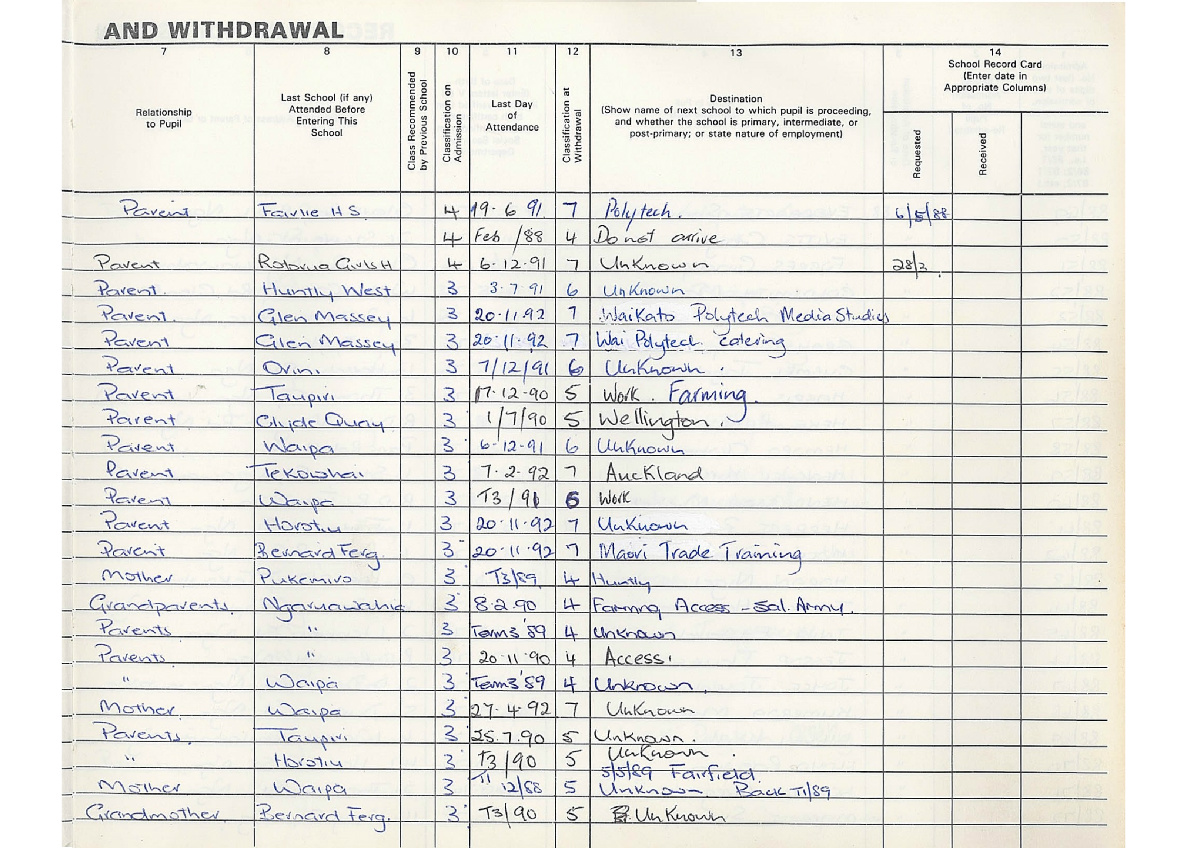 AND WITHDRAWAL
7 8 9 10 11 12 13 14
Relationship to Pupil
Last School (if any) Attended Before Entering This School
Class Recommended by Previous School
Classification on Admission
Last Day of Attendance
Classification at Withdrawal
Destination (Show name of next school to which pupil is proceeding, and whether the school is primary, intermediate, or post-primary; or state nature of employment)
School Record Card (Enter date in Appropriate Columns)
Requested
Received
Parent Fairlie H S. 4 19-6 91 7 Polytech. 6/5/88
4 Feb /88 4 Do not arrive
Parent Rotorua Girls H 4 6.12.91 7 Unknown 28/2
Parent. Huntly West 3 3.7.91 6 Unknown
Parent. Glen Massey 3 20.11.92 7 Waikato Polytech Media Studies
Parent Glen Massey 3 20.11.92 7 Wai Polytech catering
Parent Orini 3 7/12/91 6 Unknown.
Parent Taupiri 3 17.12.90 5 Work. Farming.
Parent Clyde Quay. 3 1/7/90 5 Wellington.
Parent Waipa 3 6.12.91 6 Unknown
Parent Tekowhai 3 7.2.92 7 Auckland
Parent Waipa 3 T3/90 6 Work
Parent Horotiu 3 20.11.92 7 Unknown
Parent Bernard Ferg. 3 20.11.92 7 Maori Trade Training
Mother Pukemiro 3 T3/89 4 Huntly
Grandparents. Ngaruawahia 3 8.2.90 4 Farming Access - Sal. Army.
Parents " 3 Term3 '89 4 Unknown
Parents " 3 20.11.90 4 Access.
" Waipa 3 Term3 '89 4 Unknown.
Mother Waipa 3 27.4.92 7 Unknown
Parents. Taupiri 3 25.7.90 5 Unknown.
" Horotiu 3 T3/90 5 Unknown.
5/5/89 Fairfield.
Mother Waipa 3 12/88 5 Unknown Back T1/89
Grandmother Bernard Ferg. 3 T3/90 5 Unknown